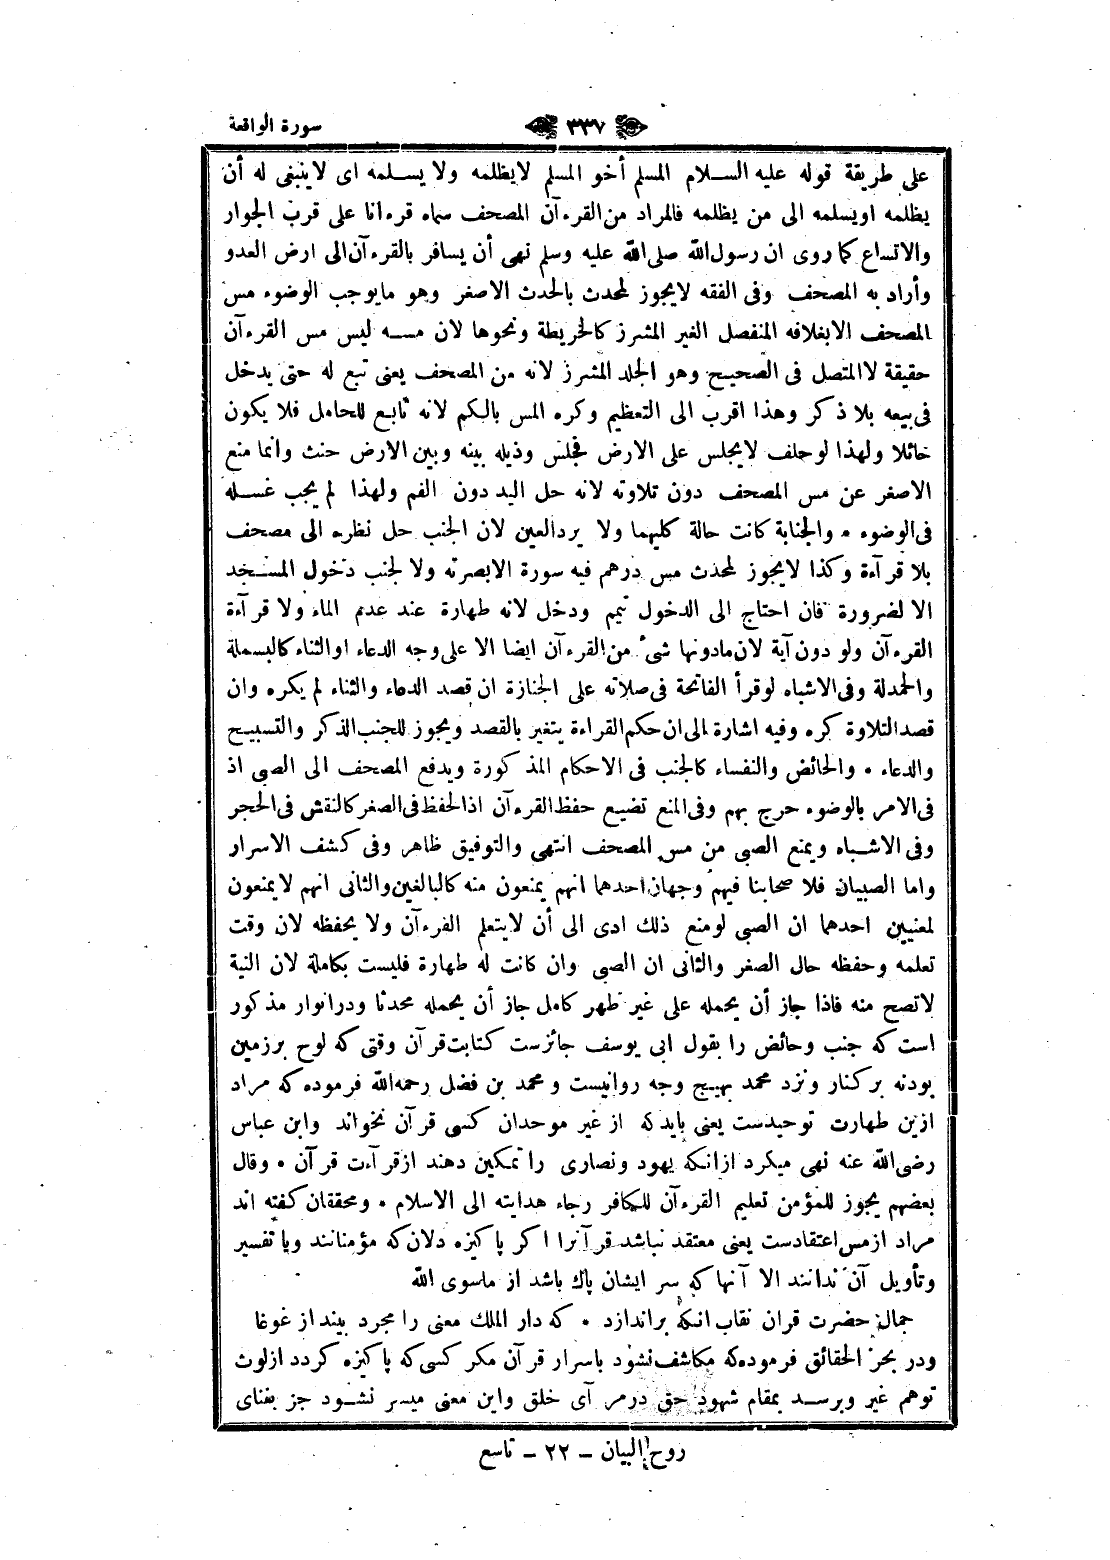 سورة الواقعة
٣٣٧
على طريقة قوله عليه السلام المسلم أخو المسلم لايظلمه ولا يسلمه اى لاينبغى له أن
يظلمه اويسلمه الى من يظلمه فالمراد من القرءآن المصحف سماه قرءانا على قرب الجوار
والاتساع كما روى ان رسول الله صلى الله عليه وسلم نهى أن يسافر بالقرءآن الى ارض العدو
وأراد به المصحف وفى الفقه لايجوز لمحدث بالحدث الاصغر وهو مايوجب الوضوء مس
المصحف الابغلافه المنفصل الغير المشرز كالخريطة ونحوها لان مسه ليس مس القرءآن
حقيقة لاالمتصل فى الصحيح وهو الجلد المشرز لانه من المصحف يعنى تبع له حتى يدخل
فى بيعه بلا ذكر وهذا اقرب الى التعظيم وكره المس بالكم لانه تابع للحامل فلا يكون
حائلا ولهذا لوحلف لايجلس على الارض فجلس وذيله بينه وبين الارض حنث وانما منع
الاصغر عن مس المصحف دون تلاوته لانه حل اليد دون الفم ولهذا لم يجب غسله
فى الوضوء • والجنابة كانت حالة كليهما ولا يردالعين لان الجنب حل نظره الى مصحف
بلا قرآءة وكذا لايجوز لمحدث مس درهم فيه سورة الابصرته ولا لجنب دخول المسجد
الا لضرورة فان احتاج الى الدخول تيمم ودخل لانه طهارة عند عدم الماء ولا قرآءة
القرءآن ولو دون آية لان مادونها شئ من القرءآن ايضا الا على وجه الدعاء اوالثناء كالبسملة
والحمدلة وفى الاشباه لوقرأ الفاتحة فى صلاته على الجنازة ان قصد الدعاء والثناء لم يكره وان
قصد التلاوة كره وفيه اشارة الى ان حكم القراءة يتغير بالقصد ويجوز للجنب الذكر والتسبيح
والدعاء • والحائض والنفساء كالجنب فى الاحكام المذكورة ويدفع المصحف الى الصبى اذ
فى الامر بالوضوء حرج بهم وفى المنع تضييع حفظ القرءآن اذالحفظ فى الصغر كالنقش فى الحجر
وفى الاشباه ويمنع الصبى من مس المصحف انتهى والتوفيق ظاهر وفى كشف الاسرار
واما الصبيان فلا صحابنا فيهم وجهان احدهما انهم يمنعون منه كالبالغين والثانى انهم لايمنعون
لمعنيين احدهما ان الصبى لومنع ذلك ادى الى أن لايتعلم القرءآن ولا يحفظه لان وقت
تعلمه وحفظه حال الصغر والثانى ان الصبى وان كانت له طهارة فليست بكاملة لان النية
لاتصح منه فاذا جاز أن يحمله على غير طهر كامل جاز أن يحمله محدثا ودرانوار مذكور
است كه جنب وحائض را بقول ابى يوسف جائزست كتابت قرآن وقتى كه لوح برزمين
بودنه بركنار ونزد محمد بهيچ وجه روانيست ومحمد بن فضل رحمه الله فرموده كه مراد
ازين طهارت توحيدست يعنى بايدكه از غير موحدان كسى قرآن نخواند وابن عباس
رضى الله عنه نهى ميكرد ازانكه يهود ونصارى را تمكين دهند ازقرآءت قرآن • وقال
بعضهم يجوز للمؤمن تعليم القرءآن للكافر رجاء هدايته الى الاسلام • ومحققان كفته اند
مراد ازمس اعتقادست يعنى معتقد نباشد قرآنرا اكر پاكيزه دلان كه مؤمنانند ويا تفسير
وتأويل آن ندانند الا آنها كه سر ايشان پاك باشد از ماسوى الله
جمال حضرت قران نقاب انكه براندازد • كه دار الملك معنى را مجرد بيند از غوغا
ودر بحر الحقائق فرموده كه مكاشف نشود باسرار قرآن مكر كسى كه پاكيزه كردد ازلوث
توهم غير وبرسد بمقام شهود حق درمرآى خلق واين معنى ميسر نشود جز بفناى
روح البيان – ٢٢ – تاسع